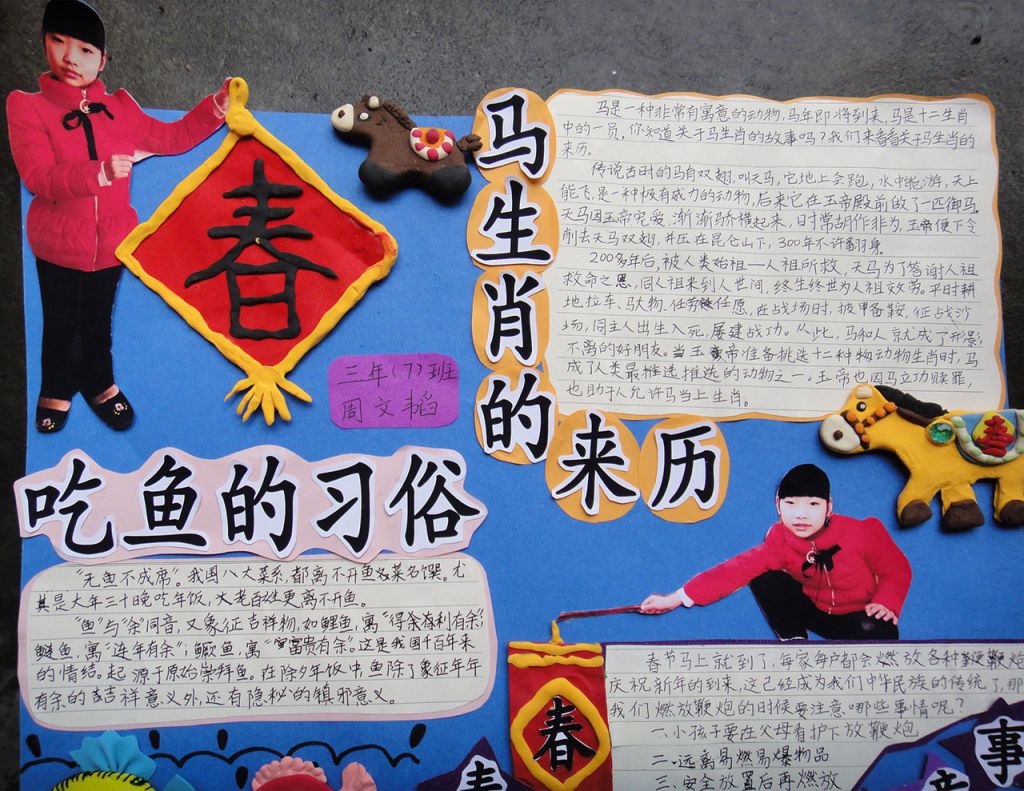 春
三年(7)班
周文韬
马生肖的来历
马是一种非常有寓意的动物,马年即将到来,马是十二生肖
中的一员,你知道关于马生肖的故事吗?我们来看看关于马生肖的
来历。
传说古时的马有双翅,叫天马,它地上会跑,水中能游,天上
能飞,是一种极有威力的动物,后来它在玉帝殿前做了一匹御马。
天马因玉帝宠爱,渐渐骄横起来,时常胡作非为,玉帝便下令
削去天马双翅,并压在昆仑山下,300年不许翻身。
200多年后,被人类始祖—人祖所救,天马为了答谢人祖
救命之恩,同人祖来到人世间,终生终世为人祖效劳。平时耕
地拉车、驮物、任劳任愿,在战场时,披甲备鞍,征战沙
场,同主人出生入死,屡建战功。从此,马和人就成了形影
不离的好朋友。当玉帝准备挑选十二种动物生肖时,马
成了人类最推选推选的动物之一。玉帝也因马立功赎罪,
也助于人允许马当上生肖。
吃鱼的习俗
“无鱼不成席”。我国八大菜系,都离不开鱼菜名馔。尤
其是大年三十晚吃年饭,大老百姓更离不开鱼。
“鱼”与“余”同音,又象征吉祥物,如鲤鱼,寓“得余存利有余”;
鲢鱼,寓“连年有余”;鳜鱼,寓“富贵有余”。这是我国千百年来
的情结。起源于原始崇拜鱼。在除夕年饭中鱼除了象征年年
有余的吉祥意义外,还有隐秘的镇邪意义。
春
春节马上就到了,每家每户都会燃放各种鞭炮
庆祝新年的到来,这已经成为我们中华民族的传统了,那
我们燃放鞭炮的时候要注意哪些事情呢?
一、小孩子要在父母看护下放鞭炮
二、远离易燃易爆物品
三、安全放置后再燃放
春
意
事